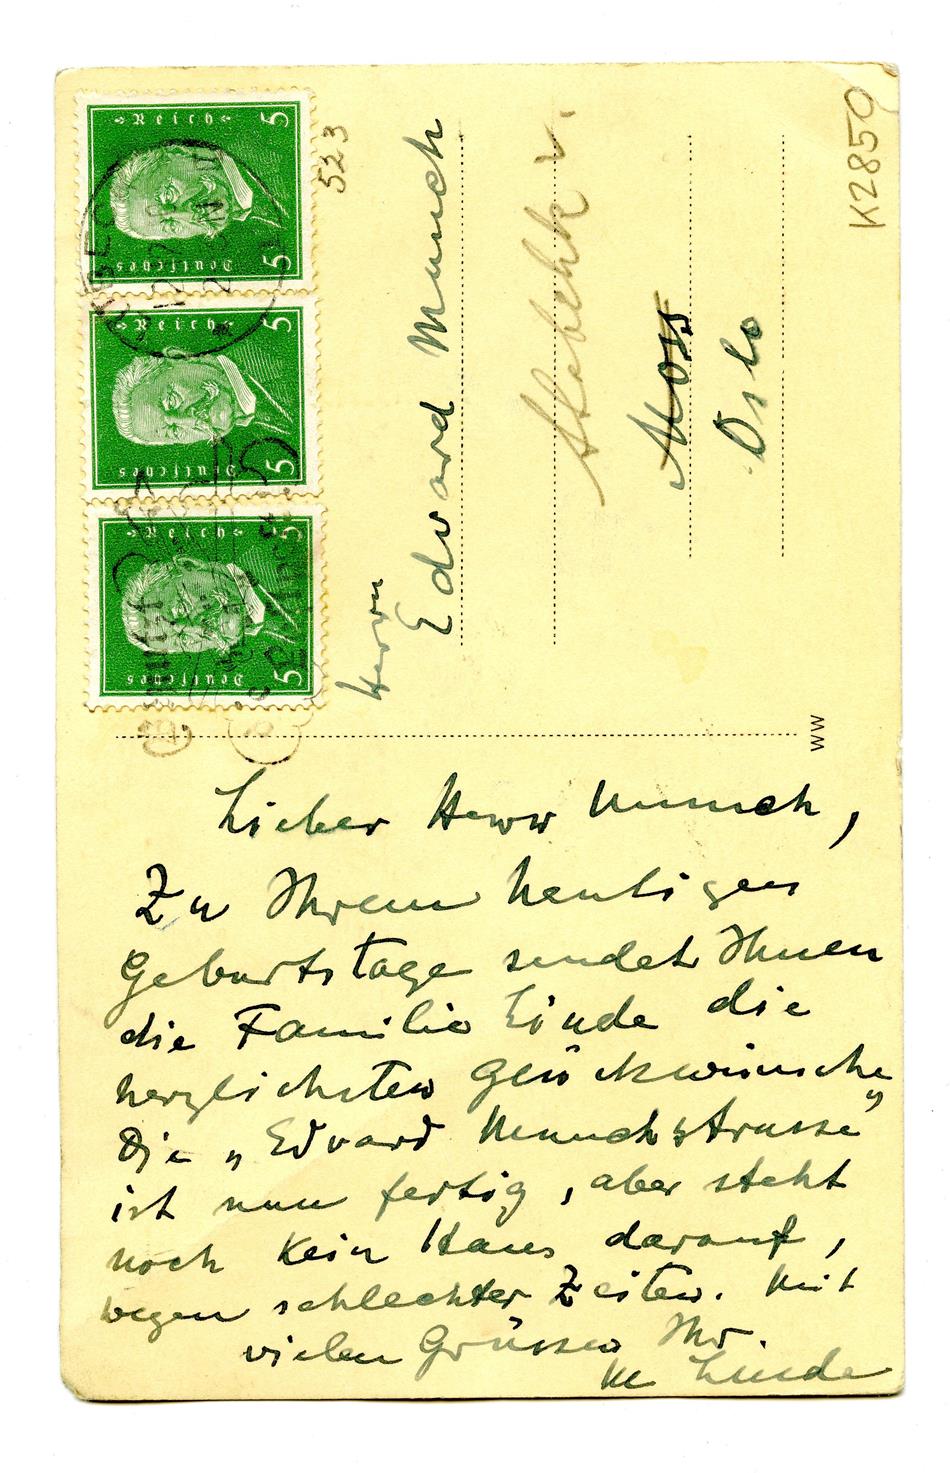 Lieber Herr Munch,
Zu Ihrem heutigen
Geburtstage sendet Ihnen
die Familie Linde die
herzlichsten Glückwünsche
Die „Edvard Munchstrasse"
ist nun fertig, aber steht
noch kein Haus darauf,
wegen schlechter Zeiten. Mit
vielen Grüssen Ihr.
M Linde
Herrn
Edvard Munch
Moss
Oslo
523
K2859
WW
Deutsches Reich
5 5
Deutsches Reich
5 5
Deutsches Reich
5 5